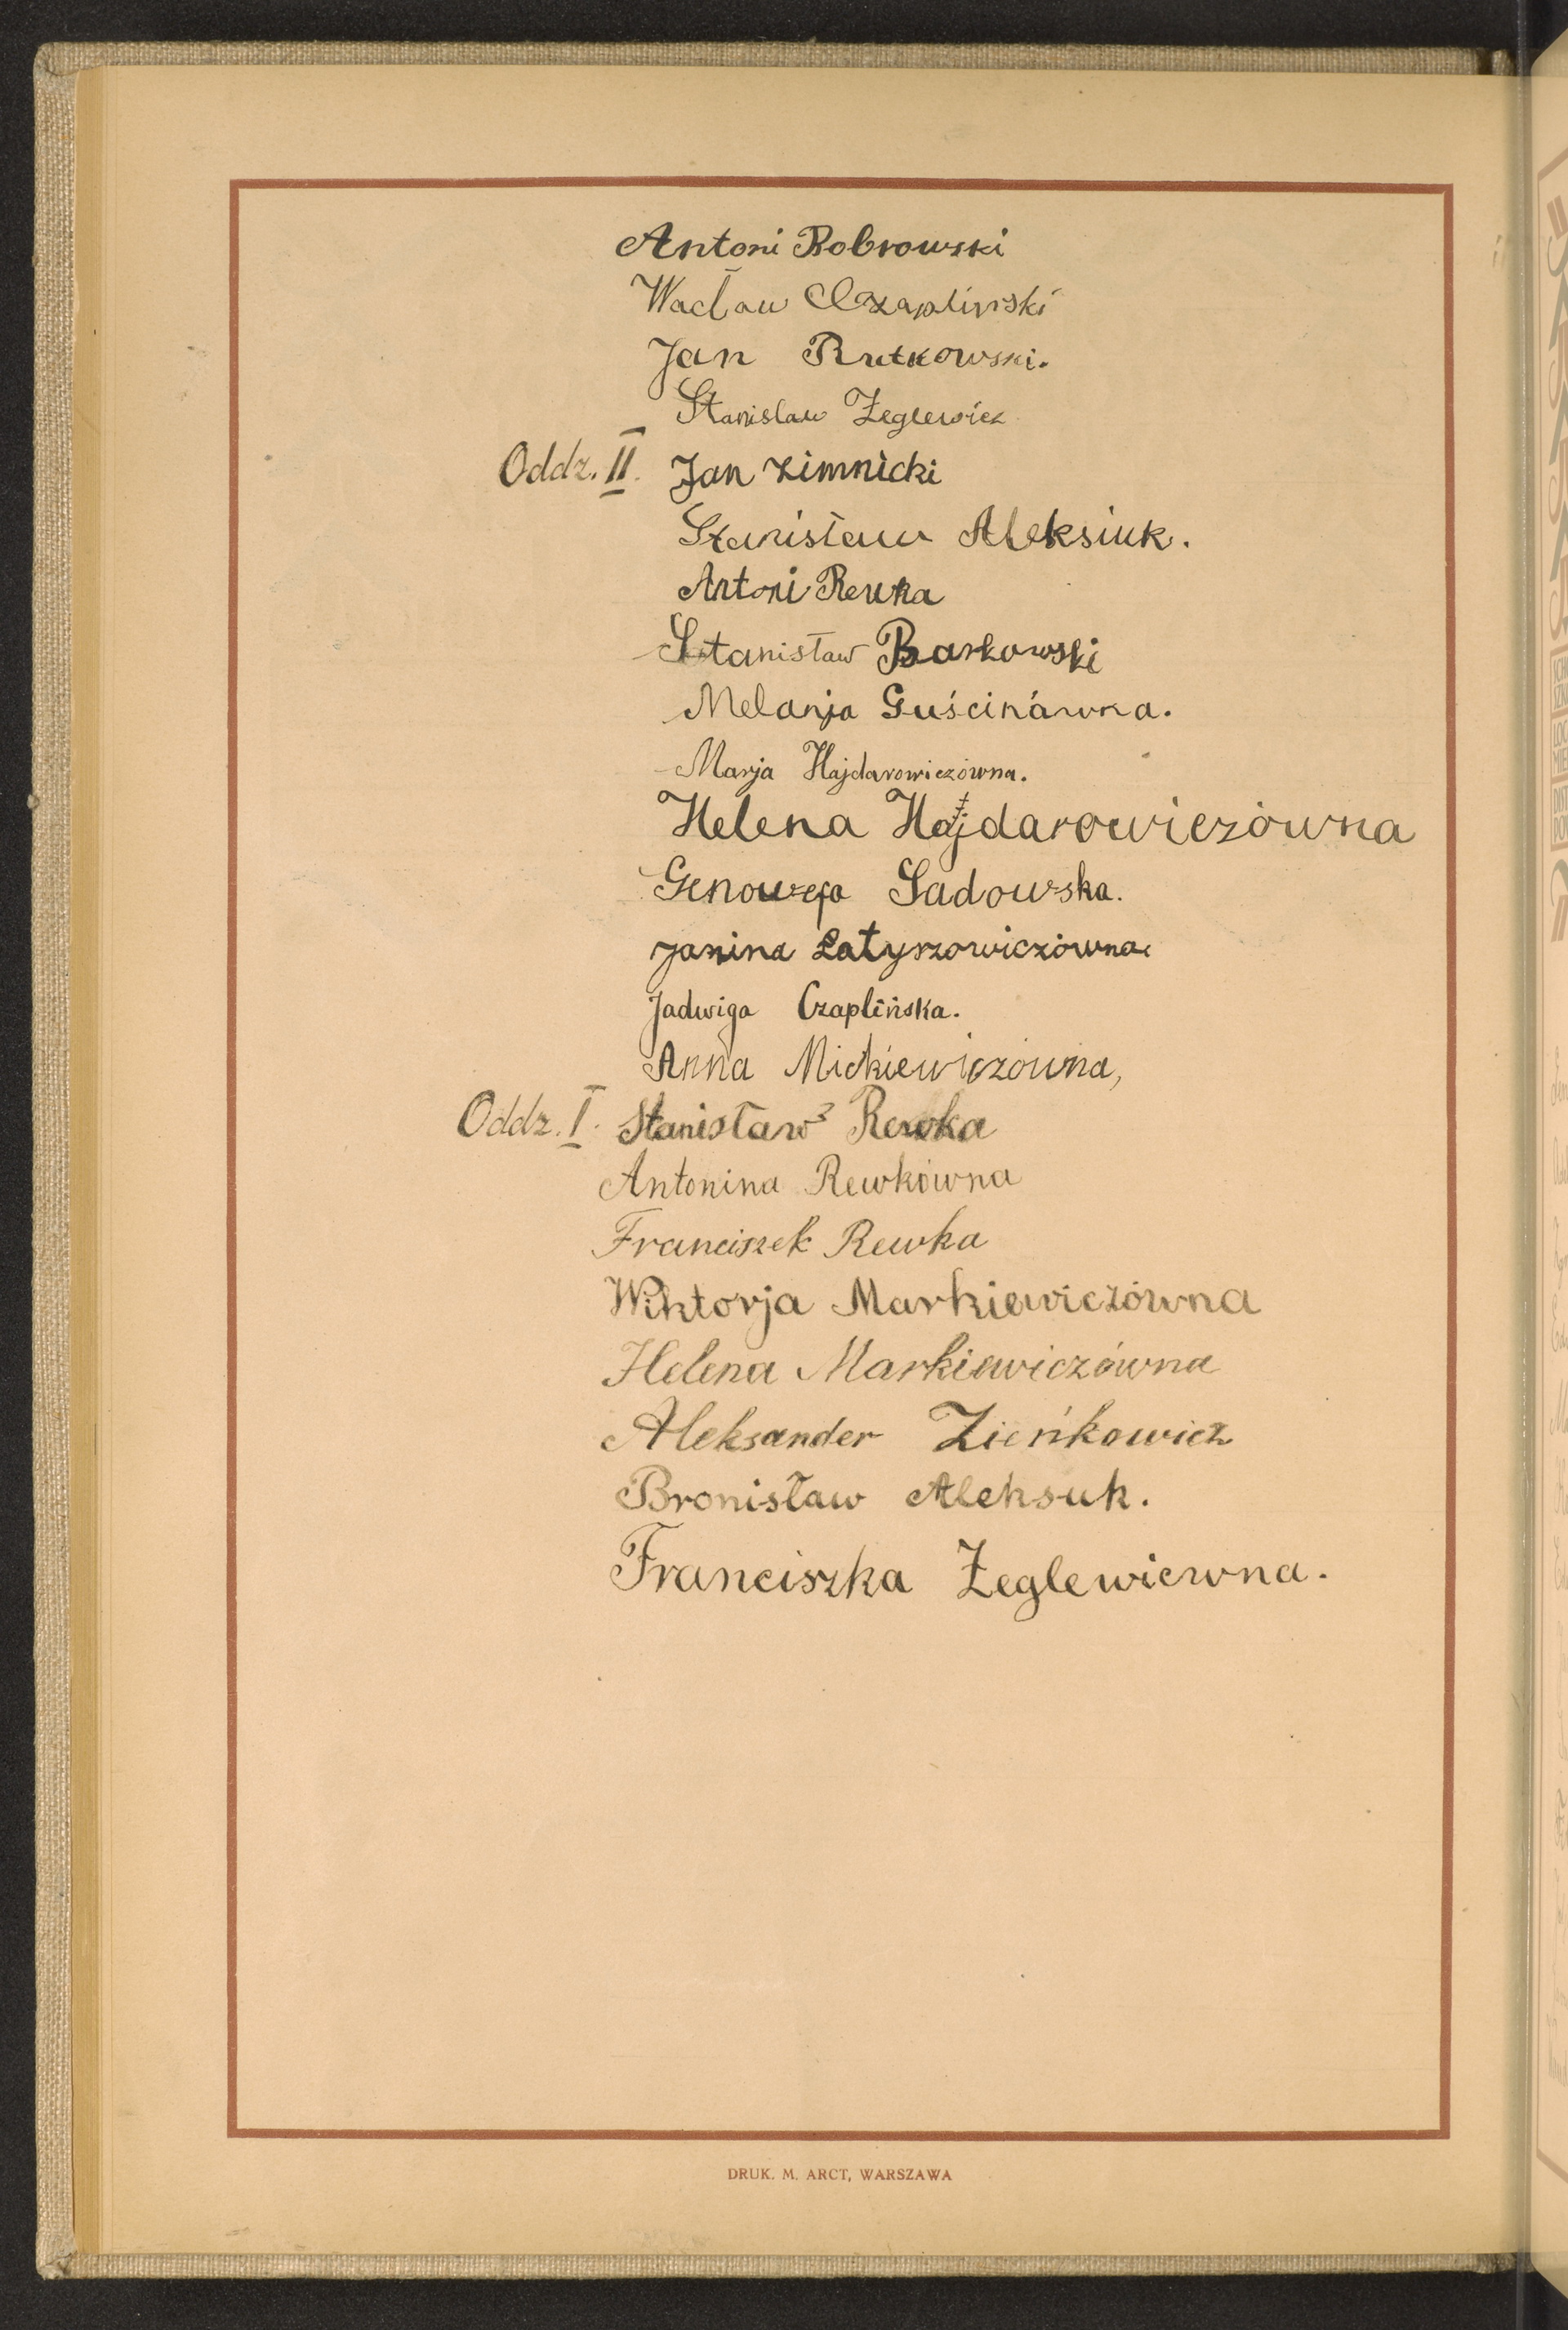 Antoni Bobrowski
Wacław Czapliński
Jan Rutkowski.
Stanisław Żeglewicz
Oddz. II. Jan Zimnicki
Stanisław Aleksiuk.
Antoni Rewka
Stanisław Barkowski
Melanja Guścinówna.
Marja Hajdarowiczówna.
Helena Hajdarowiczówna
Genowefa Sadowska.
Janina Łatyszowiczówna
Jadwiga Czaplińska.
Anna Mickiewiczówna,
Oddz. I. Stanisław Rewka
Antonina Rewkówna
Franciszek Rewka
Wiktorja Markiewiczówna
Helena Markiewiczówna
Aleksander Zieńkowicz
Bronisław Aleksuk.
Franciszka Żeglewiczwna.
DRUK. M. ARCT, WARSZAWA